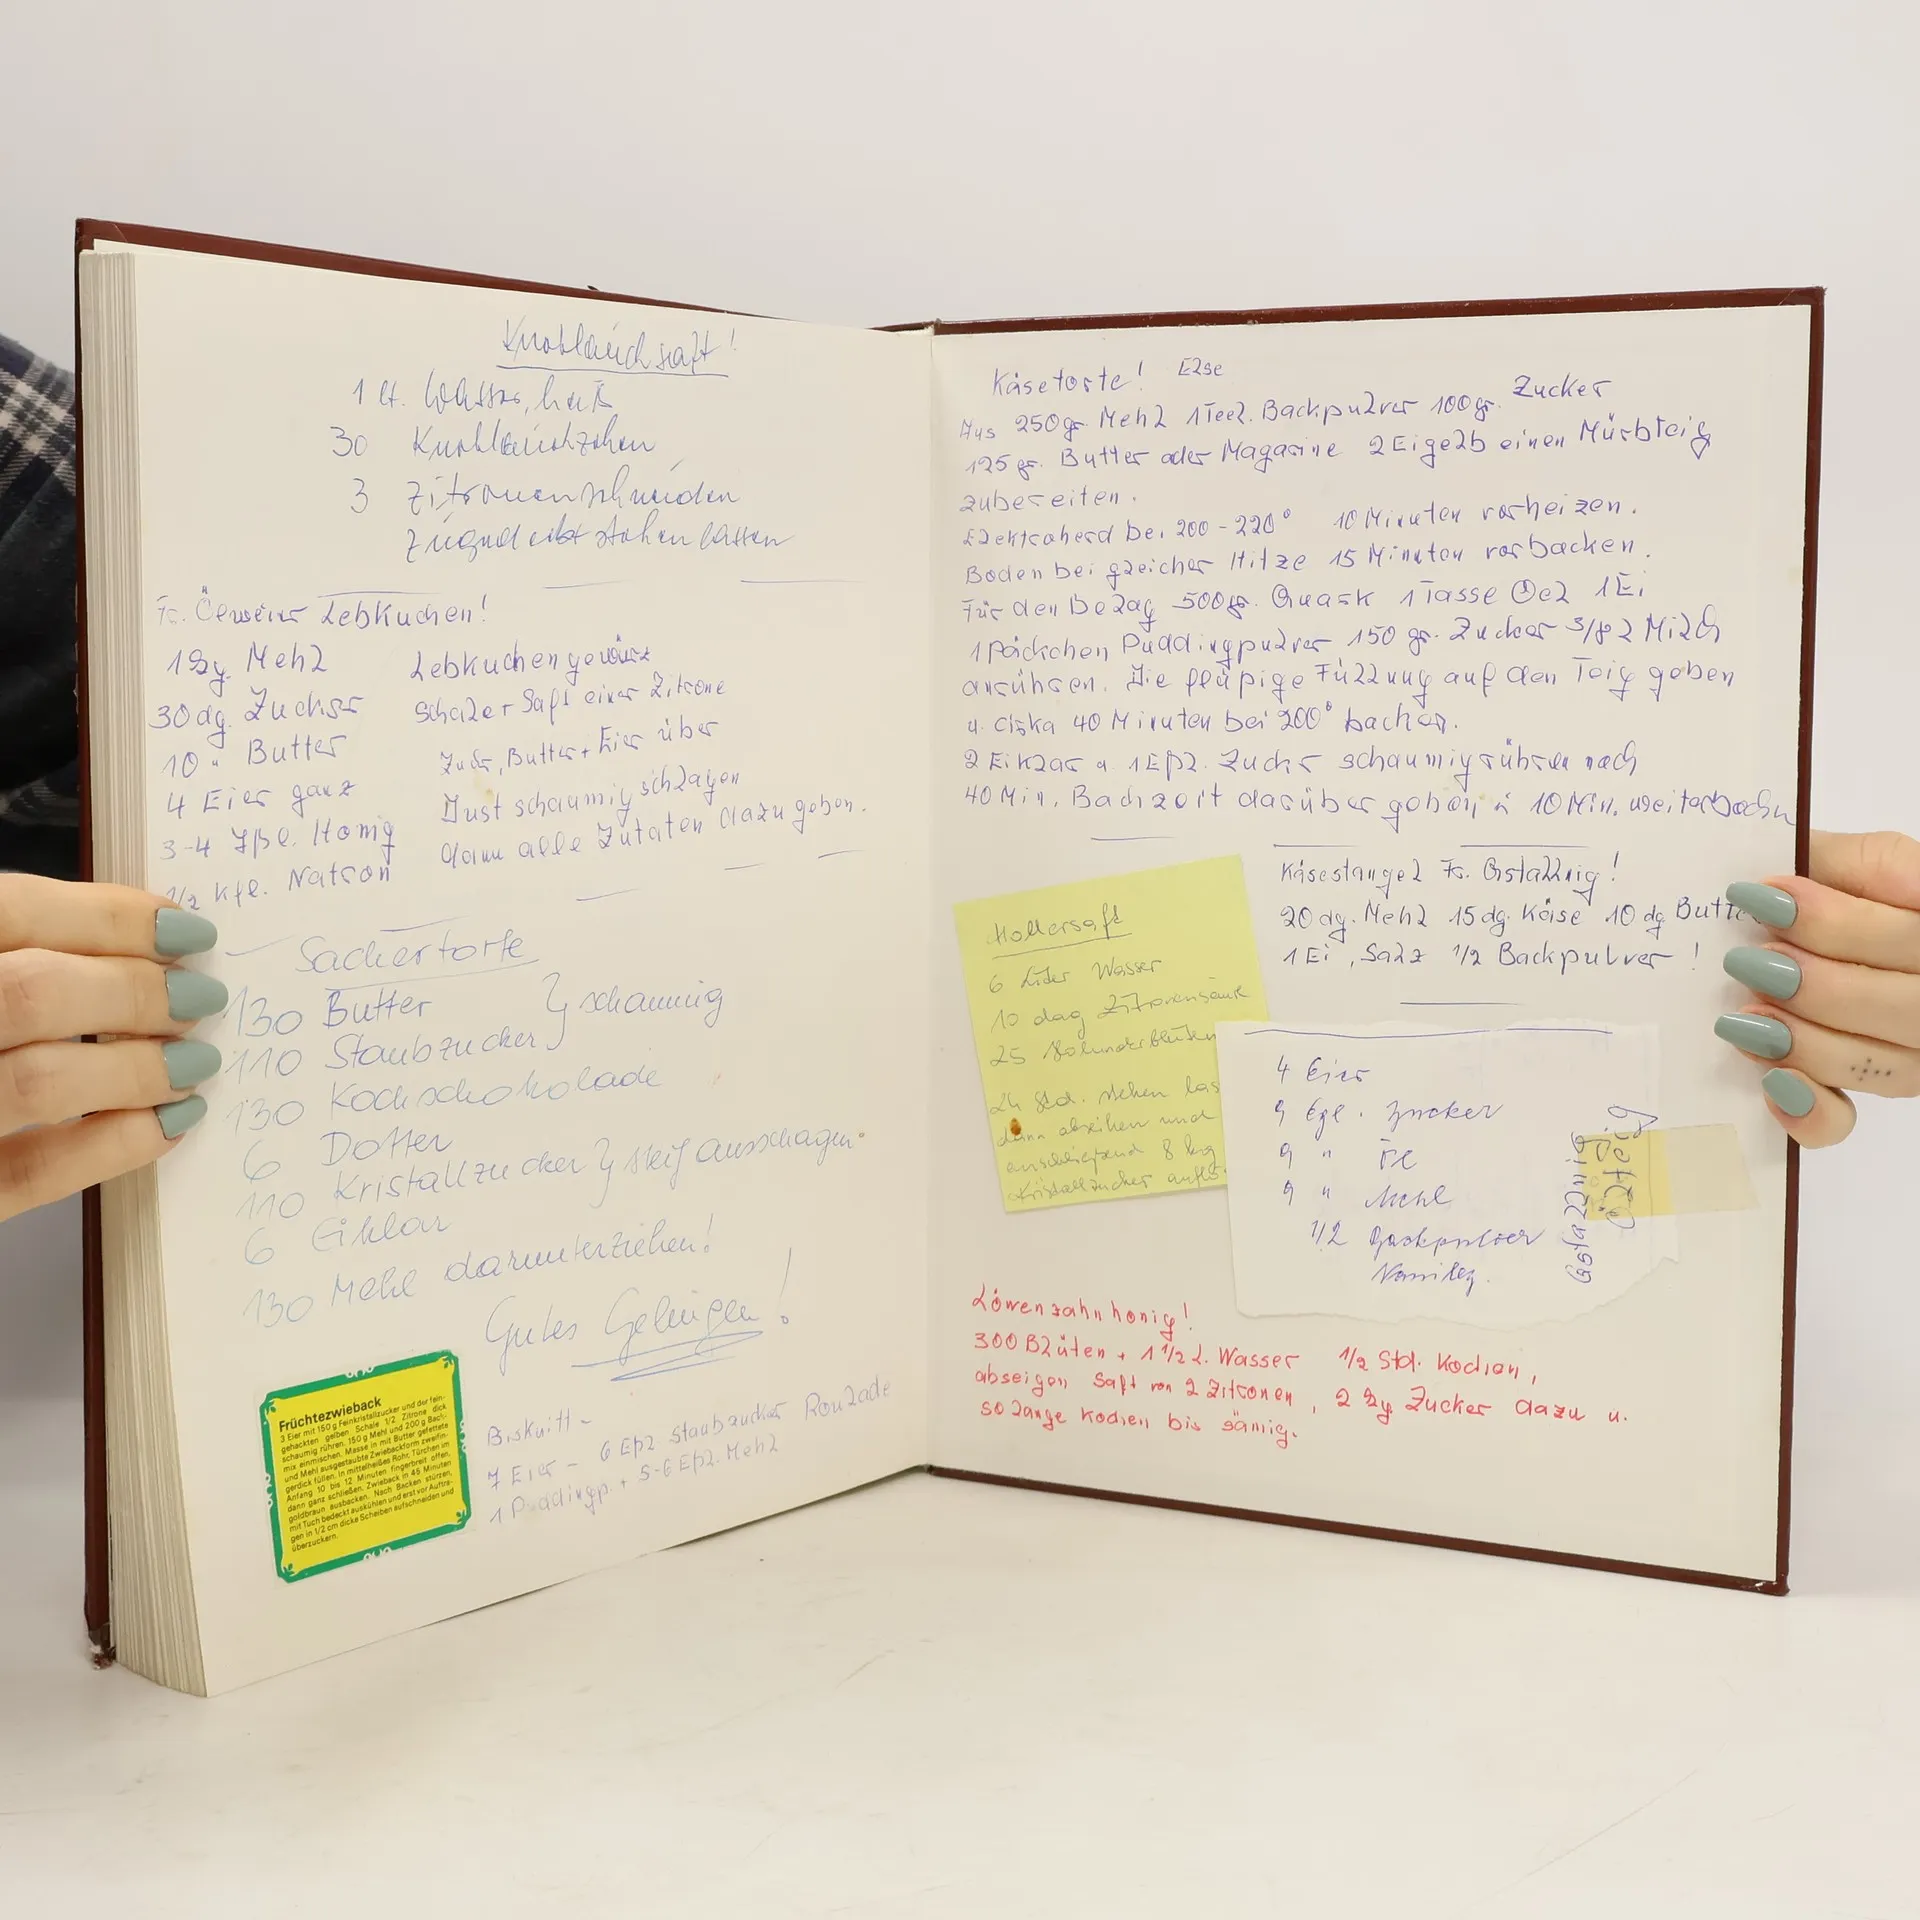 Knoblauchsaft!
1 lt. Wasser, heiß
30 Knoblauchzehen
3 Zitronen schneiden
zugedeckt stehen lassen
Fr. Lebkuchen!
1 kg. Mehl
30 dg. Zucker
10 " Butter
4 Eier ganz
3-4 Eßl. Honig
1/2 Kfl. Natron
Lebkuchengewürz
Schale + Saft einer Zitrone
Zuck, Butter + Eier über
Dust schaumig schlagen
dann alle Zutaten dazu geben.
Sachertorte
130 Butter } schaumig
110 Staubzucker
130 Kochschokolade
6 Dotter
110 Kristallzucker } steif ausschagen
6 Eiklar
130 Mehl darunterziehen!
Gutes Gelingen!
Früchtezwieback
3 Eier mit 150 g Feinkristallzucker und der fein-
gehackten gelben Schale 1/2 Zitrone dick
schaumig rühren. 150 g Mehl und 200 g Back-
mix einmischen. Masse in mit Butter gefettete
und Mehl ausgestaubte Zwiebackform zweifin-
gerdick füllen. In mittelheißes Rohr, Türchen im
Anfang 10 bis 12 Minuten fingerbreit offen,
dann ganz schließen. Zwieback in 45 Minuten
goldbraun ausbacken. Nach Backen stürzen,
mit Tuch bedeckt auskühlen und erst vor Auftra-
gen in 1/2 cm dicke Scheiben aufschneiden und
überzuckern.
Biskuitt - Roulade
7 Eier - 6 Eßl Staubzucker
1 Puddingp. + 5-6 Eßl. Mehl
Käsetorte! Else
Aus 250 gr. Mehl 1 Teel. Backpulver 100 gr. Zucker
125 gr. Butter oder Magarine 2 Eigelb einen Mürbteig
zubereiten.
Elektroherd bei 200-220° 10 Minuten vorheizen.
Boden bei gleicher Hitze 15 Minuten vorbacken.
Für den Belag 500 gr. Quark 1 Tasse Oel 1 Ei
1 Päckchen Puddingpulver 150 gr. Zucker 3/8 l Milch
anrühren. Die flüßige Füllung auf den Teig geben
u. cirka 40 Minuten bei 200° backen.
2 Eiklar u. 1 Eßl. Zuckr schaumig rühren nach
40 Min. Backzeit darüber geben, u 10 Min. weiterbacken
Käsestangel Fr. Gstaltnig!
20 dg. Mehl 15 dg. Käse 10 dg Butte
1 Ei, Salz 1/2 Backpulver!
Hollersaft
6 Liter Wasser
10 dag Zitronensäure
25 Holunderblüten
24 Std. stehen las
dann abseihen und
anschließend 8 kg
Kristallzucker auflö
4 Eier
9 Eßl. Zucker
9 " Öl
9 " Mehl
1/2 Backpulver
Vanillez.
Ölteig
Löwenzahnhonig!
300 Blüten + 1 1/2 L. Wasser 1/2 Std. Kochen,
abseigen Saft von 2 Zitronen, 2 kg Zucker dazu u.
so lange Kochen bis sämig.